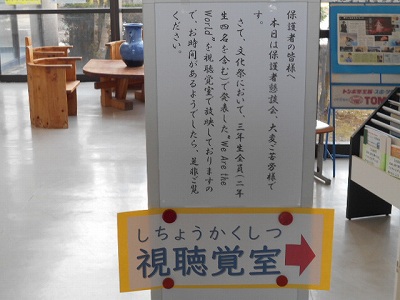 保護者の皆様へ
本日は保護者懇談会、大変ご苦労様で
す。
さて、文化祭において、三年生全員(二年
生四名を含む)で発表した"We Are the
World"を視聴覚室で放映しておりますの
で、お時間があるようでしたら、是非ご覧
ください。
しちょうかくしつ
視聴覚室
TOM